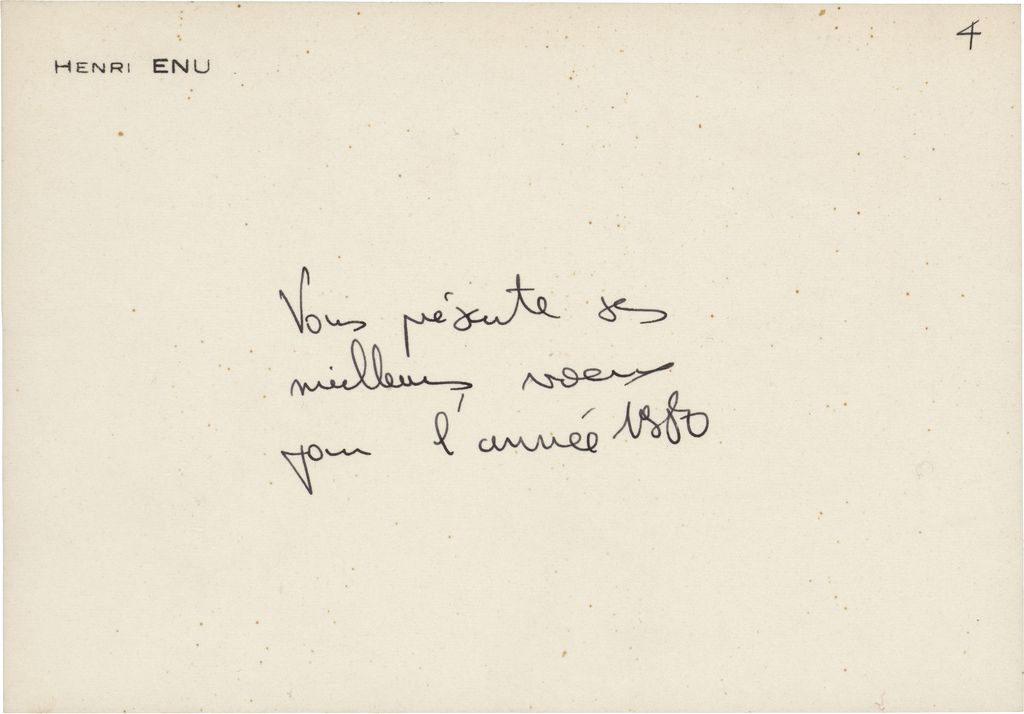 HENRI ENU
4
Vous présente ses
meilleurs voeux
pour l'année 1980